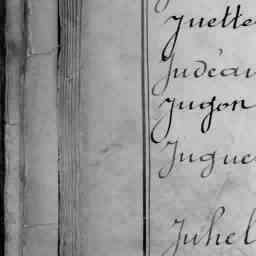 Juette
Judéau
Jugon
Jugue
Juhel